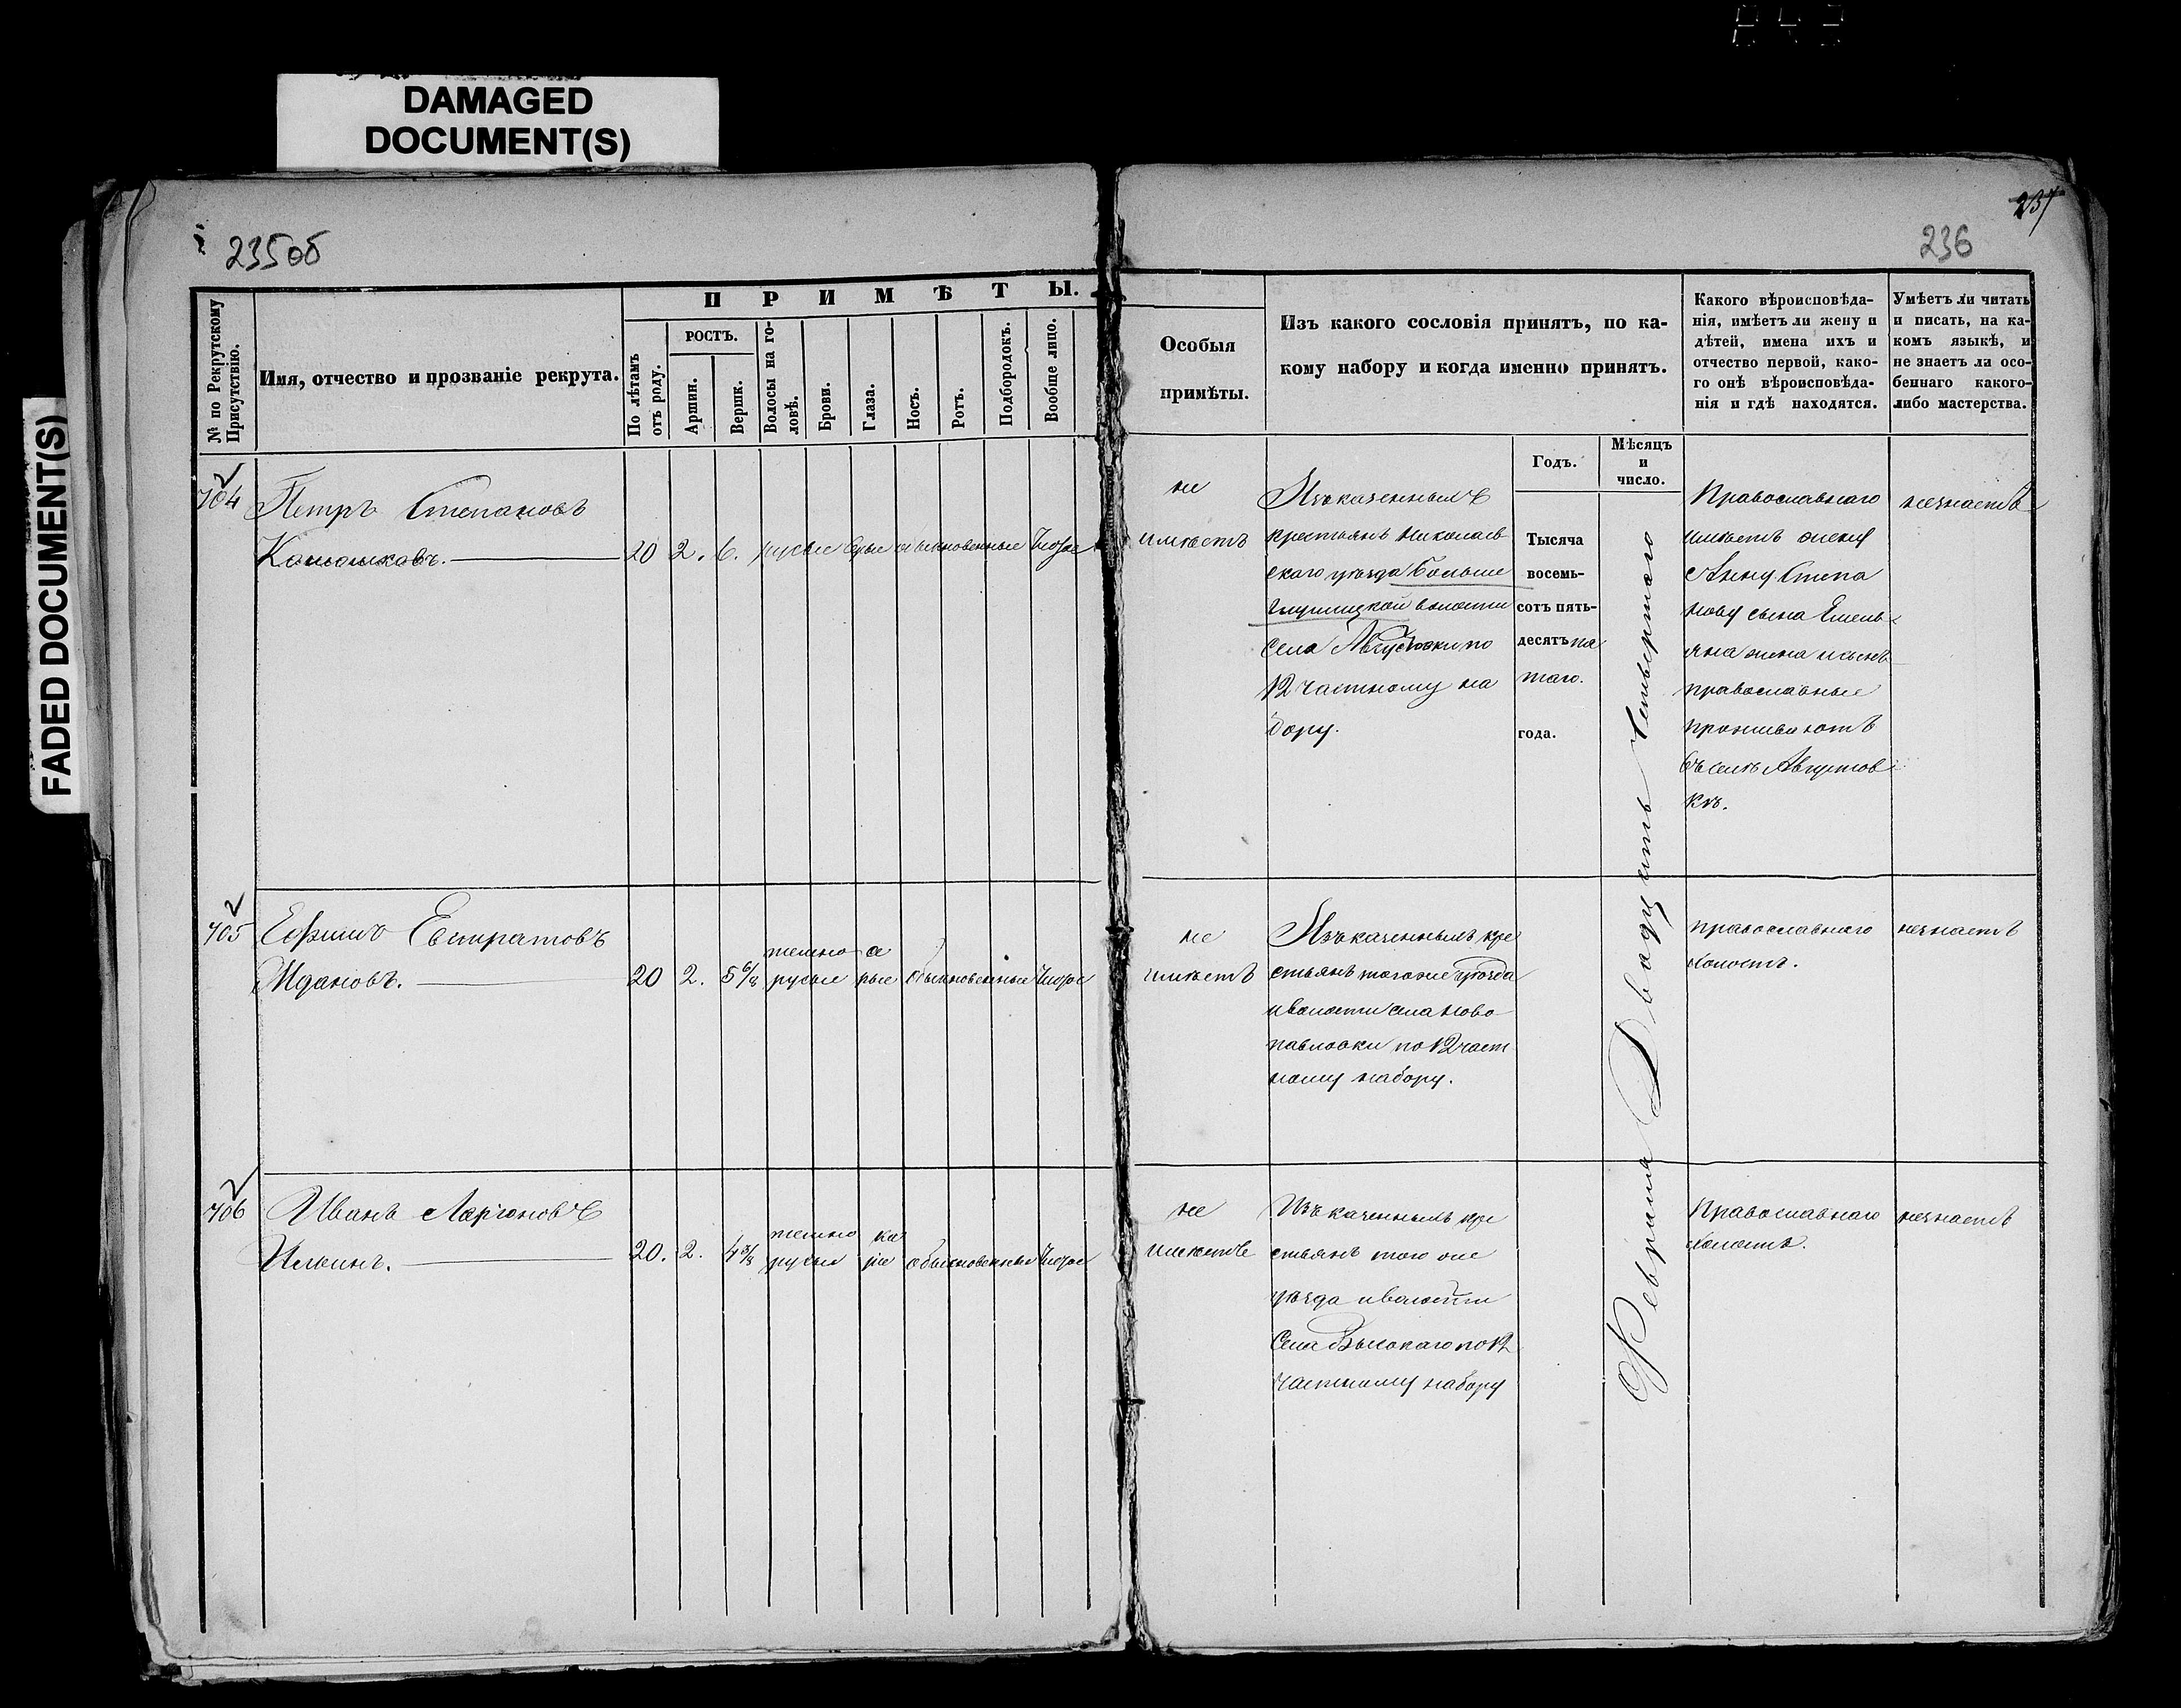 DAMAGED
DOCUMENT(S)
FADED DOCUMENT(S)
235об
237
236
№ по Рекрутскому Присутствію.
Имя, отчество и прозваніе рекрута.
ПРИМѢТЫ.
По лѣтамъ отъ роду.
РОСТЪ.
Аршин.
Вершк.
Волосы на головѣ.
Брови.
Глаза.
Носъ.
Ротъ.
Подбородокъ.
Вообще лицо.
Особыя
примѣты.
Изъ какого сословія принятъ, по ка-
кому набору и когда именно принятъ.
Годъ.
Мѣсяцъ
и
число.
Какого вѣроисповѣда-
нія, имѣетъ ли жену и
дѣтей, имена ихъ и
отчество первой, како-
го онѣ вѣроисповѣда-
нія и гдѣ находятся.
Умѣетъ ли читать
и писать, на ка-
комъ языкѣ, и
не знаетъ ли осо-
беннаго какого-
либо мастерства.
704
Петръ Степановъ
20 2. 6. русые сѣрые обыкновенные чистое
не
имѣетъ
Изъ казенныхъ
крестьянъ Николаев
скаго уѣзда Больше
глушицкой волости
села Августовки по
12 частному на
бору.
Тысяча
восемь-
сотъ пять-
десятъ пя
таго.
года.
Февраля Двадцать Четвертаго
Православнаго
имѣетъ жену
Анну Степа
нову сына Емель
яна жена и сынъ
православные
проживаютъ
въ селѣ Августов
кѣ.
незнаетъ
705
Ефимъ Евстратовъ
Ждановъ.
20 2. 5 6/8 темно русые сѣ
рые обыкновенные чистое
не
имѣетъ
Изъ казенныхъ кре
стьянъ тогоже уѣзда
и волости села Ново
павловки по 12 част
ному набору.
православнаго
холостъ.
незнаетъ
706
Иванъ Ларіоновъ
Ильинъ.
20. 2. 4 3/8 темно русые ка
ріе обыкновенные чистое
не
имѣетъ
Изъ казенныхъ кре
стьянъ того же
уѣзда и волости
Села Высокаго по 12
частному набору
Православнаго
холостъ.
незнаетъ